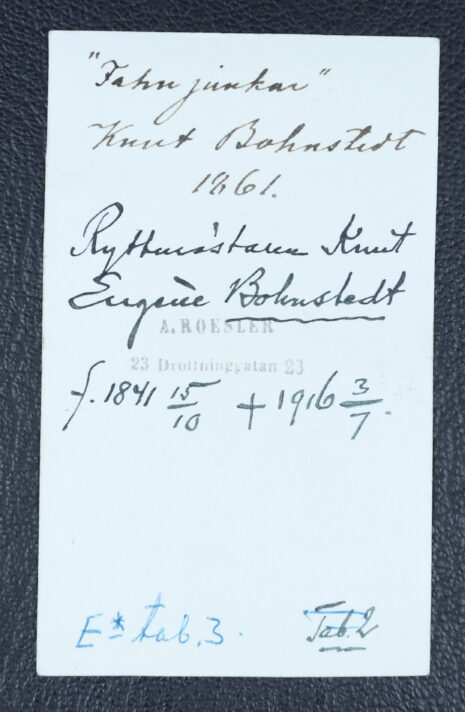 "Fahnjunkar"
Knut Bohnstedt
1861.
Ryttmästaren Knut
Eugène Bohnstedt
A. ROESLER
23 Drottninggatan 23
f. 1841 15/10 + 1916 3/7.
E* tab. 3.
Tab. 2